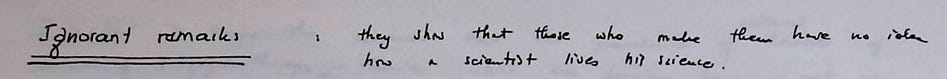 Ignorant remarks : they show that those who make them have no idea
how a scientist lives his science.